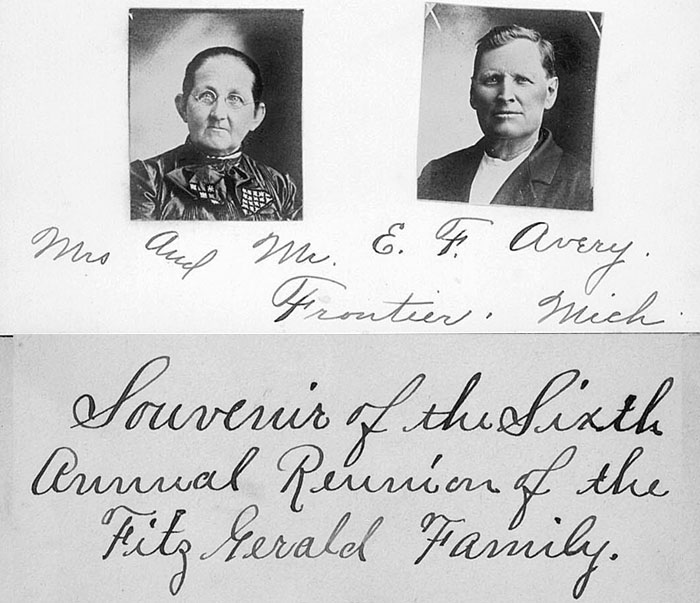 Mrs and Mr. E. F. Avery.
Frontier. Mich.
Souvenir of the Sixth
Annual Reunion of the
Fitz Gerald Family.